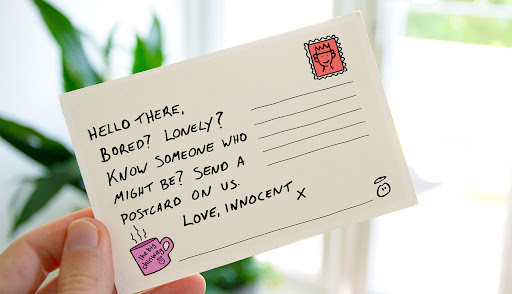 HELLO THERE,
BORED? LONELY?
KNOW SOMEONE WHO
MIGHT BE? SEND A
POSTCARD ON US.
LOVE, INNOCENT X
The big
chinwag